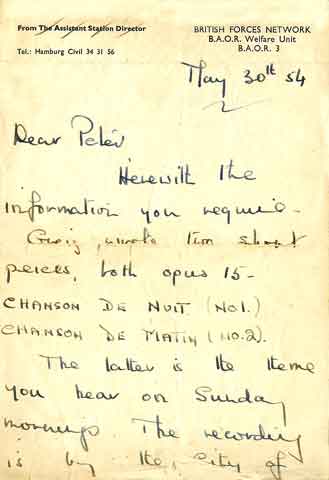 From The Assistant Station Director
Tel.: Hamburg Civil 34 31 56
BRITISH FORCES NETWORK
B.A.O.R. Welfare Unit
B.A.O.R. 3
May 30th 54
Dear Peter
Herewith the
information you require-
wrote two short
peices, both opus 15-
CHANSON DE NUIT (NO1.)
CHANSON DE MATIN (NO.2).
The latter is the theme
you hear on Sunday
mornings. The recording
is by the City of